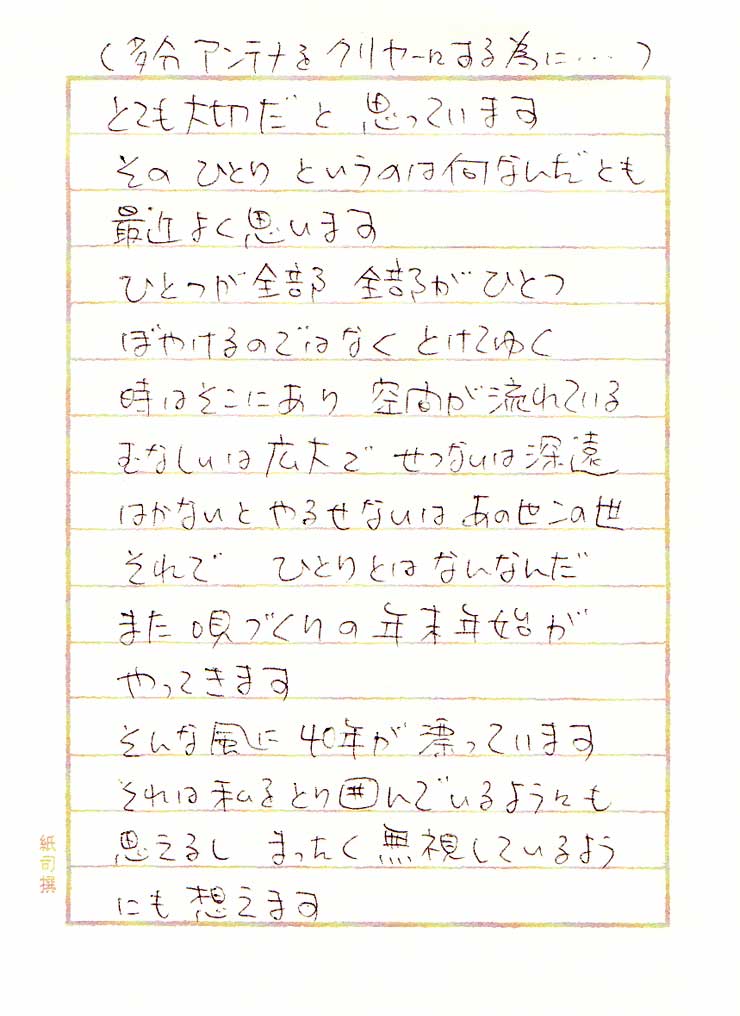 (多分 アンテナを クリヤーにする為に・・・)
とても大切だと 思っています
その ひとり というのは何なんだとも
最近よく思います
ひとつが全部 全部がひとつ
ぼやけるのではなく とけてゆく
時はそこにあり 空間が流れている
むなしいは広大で せつないは深遠
はかないと やるせないは あの世この世
それで ひとりとは なんなんだ
また 唄づくりの 年末年始が
やってきます
そんな風に 40年が 漂っています
それは 私をとり囲んでいるようにも
思えるし まったく無視しているよう
にも 想えます
紙司撰